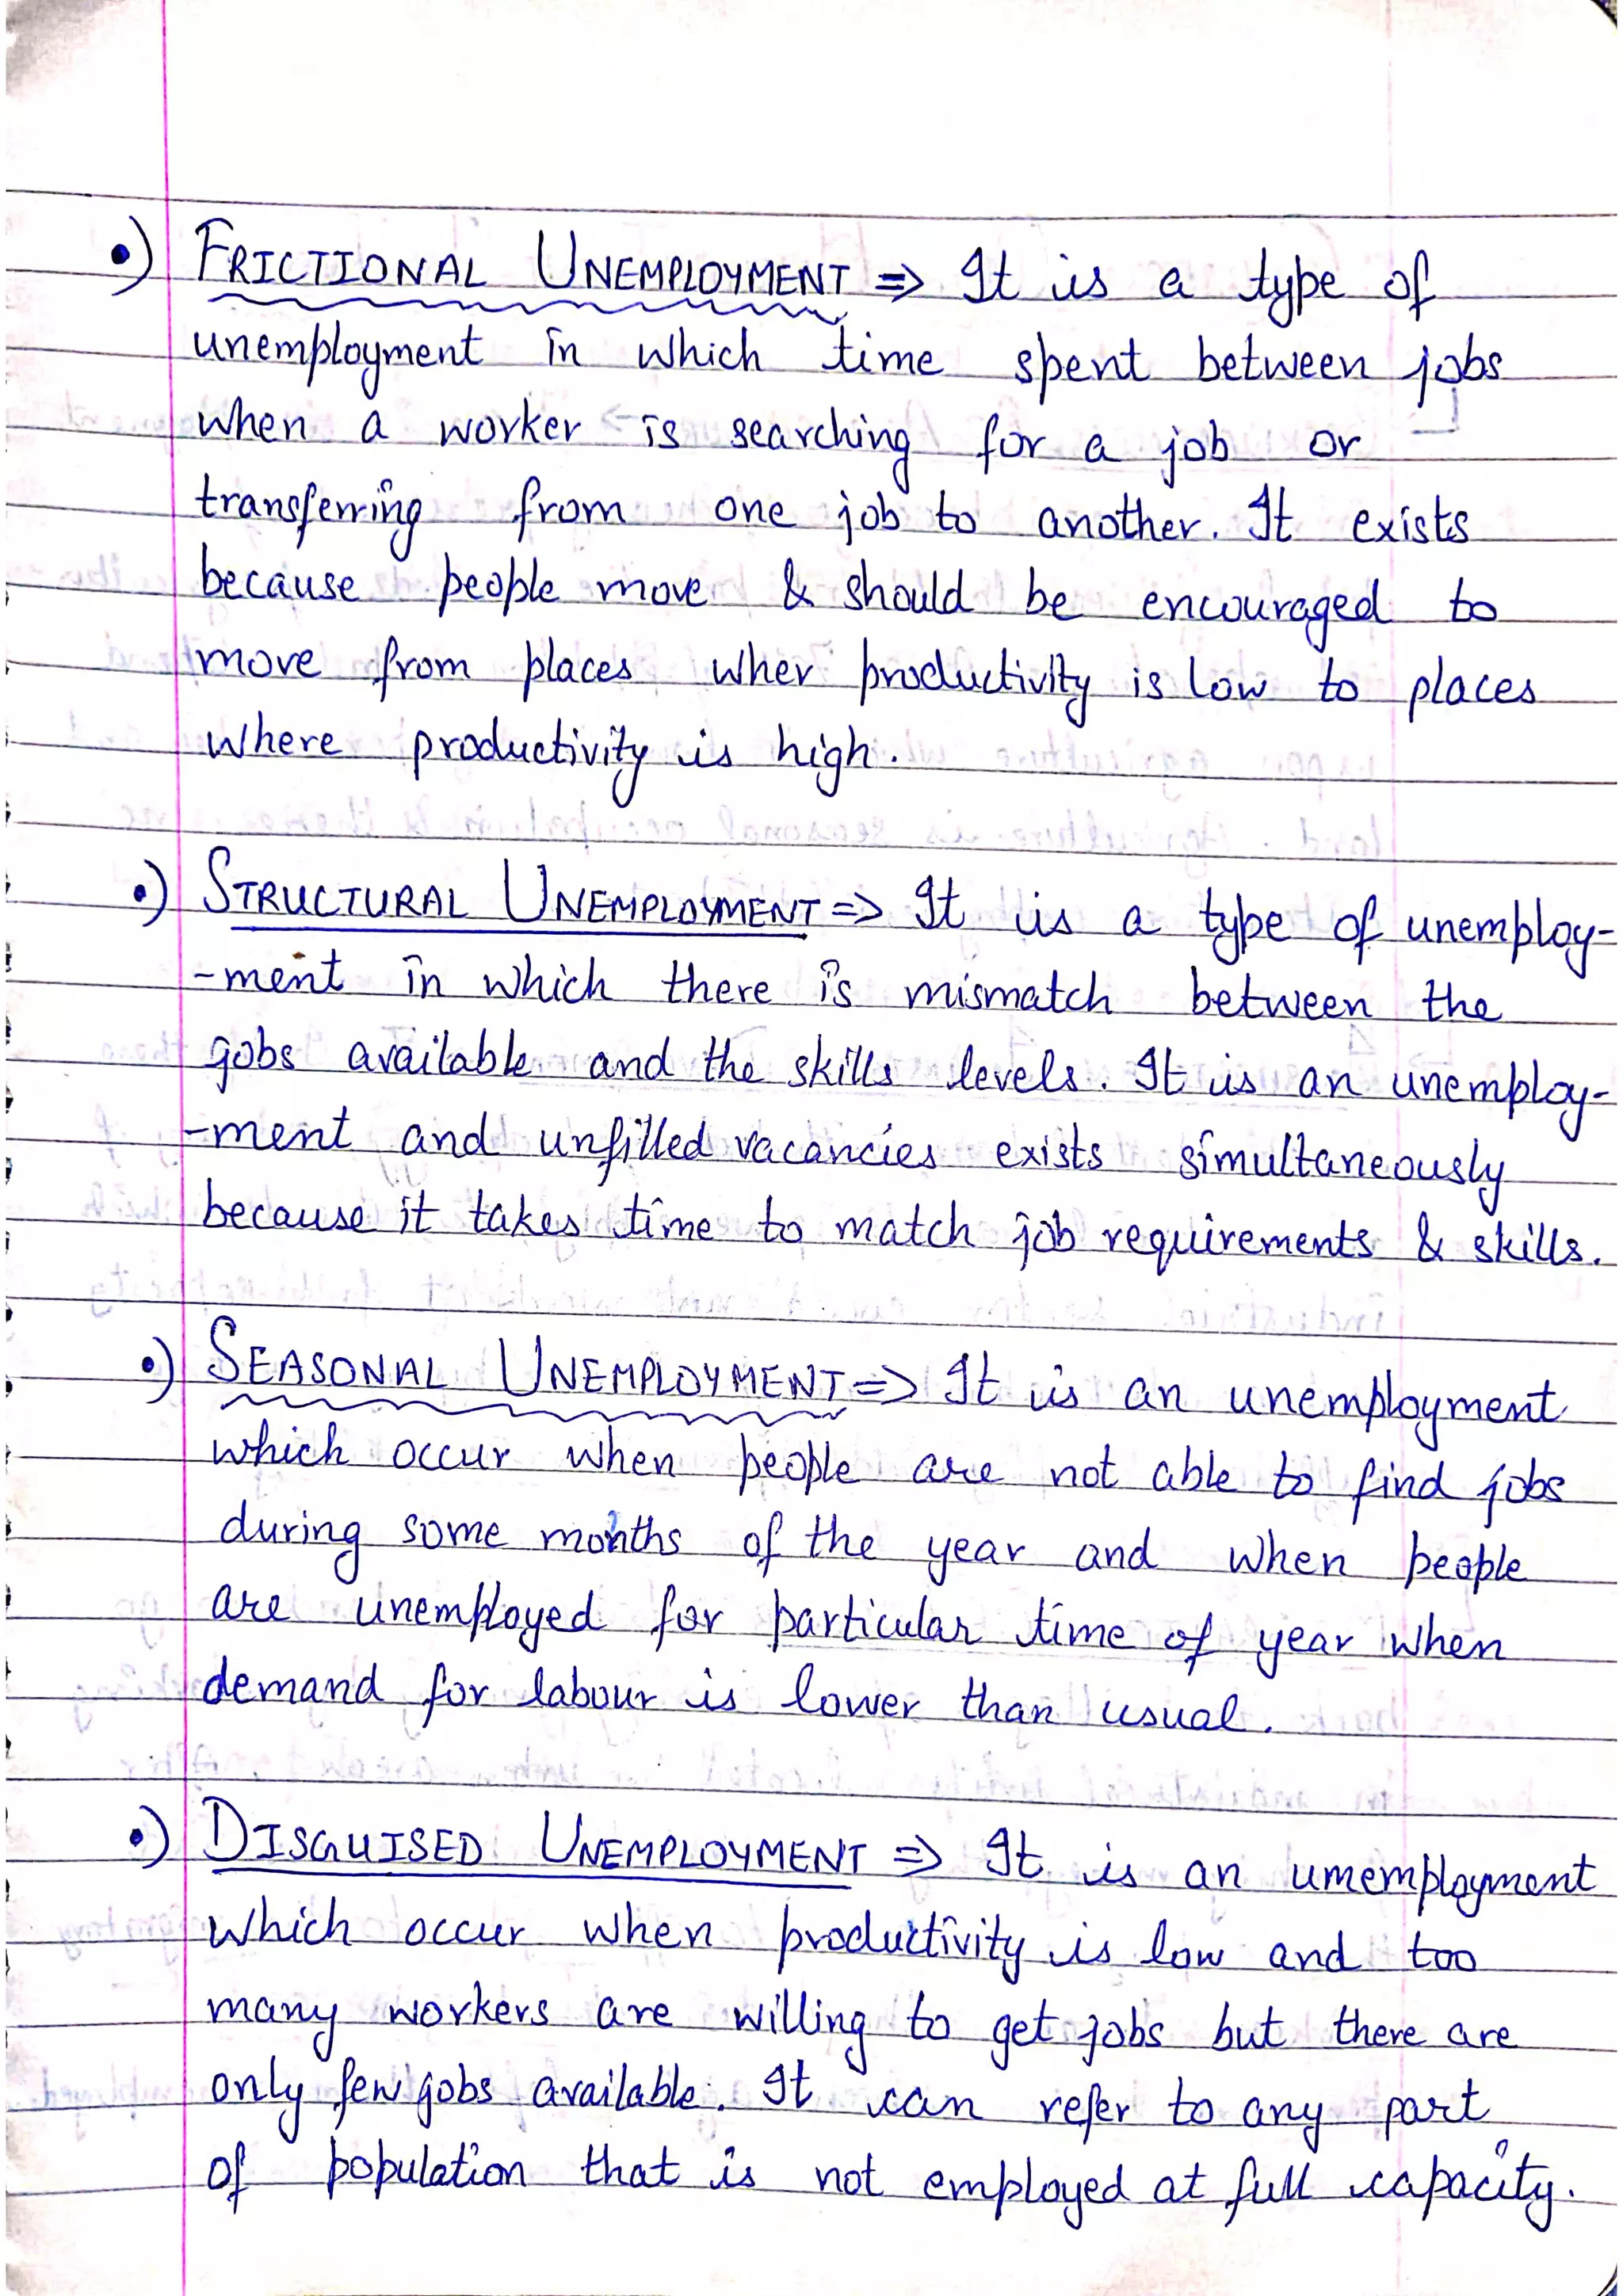 •) FRICTIONAL UNEMPLOYMENT ⇒ It is a type of
unemployment in which time spent between jobs
when a worker is searching for a job or
transferring from one job to another. It exists
because people move & should be encouraged to
move from places wher productivity is low to places
where productivity is high.
•) STRUCTURAL UNEMPLOYMENT ⇒ It is a type of unemploy-
-ment in which there is mismatch between the
jobs available and the skills levels. It is an unemploy-
-ment and unfilled vacancies exists simultaneously
because it takes time to match job requirements & skills.
•) SEASONAL UNEMPLOYMENT ⇒ It is an unemployment
which occur when people are not able to find jobs
during some months of the year and when people
are unemployed for particular time of year when
demand for labour is lower than usual.
•) DISGUISED UNEMPLOYMENT ⇒ It is an umemployment
which occur when productivity is low and too
many workers are willing to get jobs but there are
only few jobs available. It can refer to any part
of population that is not employed at full capacity.